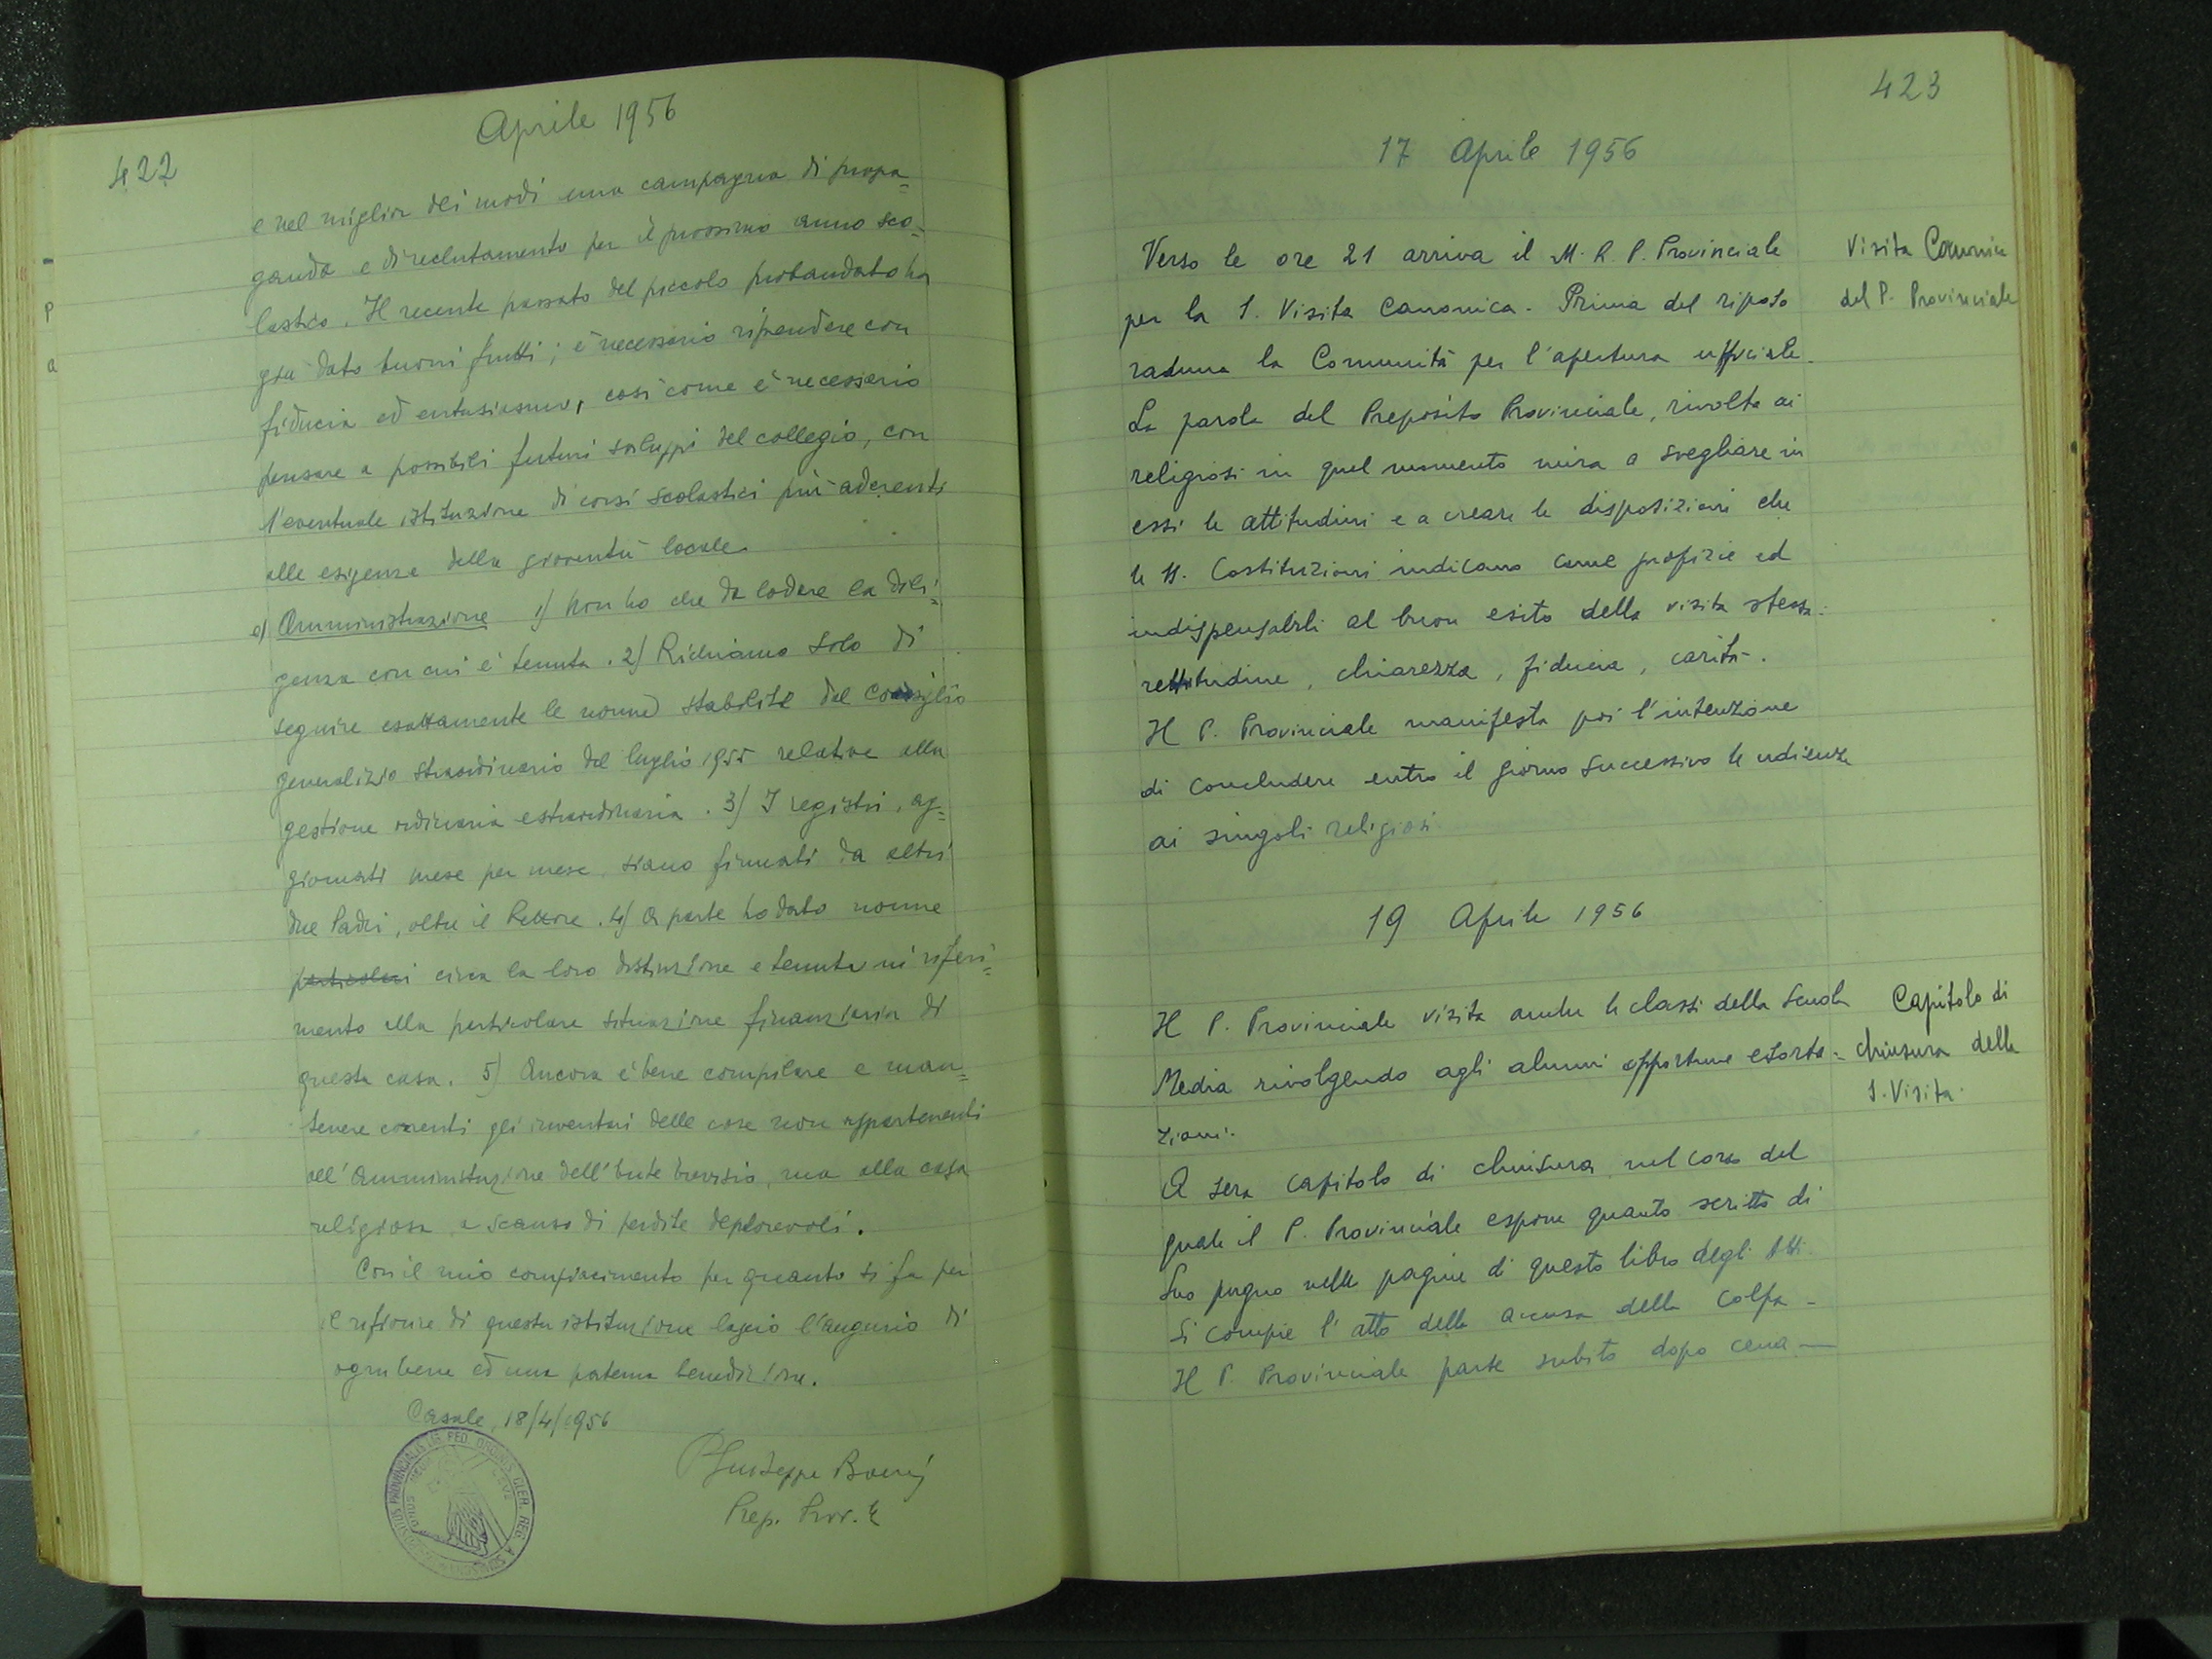 422
Aprile 1956
e nel miglior dei modi una campagna di propa=
ganda e di reclutamento per il prossimo anno sco=
lastico. Il recente passato del piccolo probandato ha
già dato buoni frutti; è necessario riprendere con
fiducia ed entusiasmo, così come è necessario
pensare a possibili futuri sviluppi del collegio, con
l'eventuale istituzione di corsi scolastici più aderenti
alle esigenze della gioventù locale.
e) Amministrazione 1) Non ho che da lodare la dili=
genza con cui è tenuta. 2) Richiamo solo di
seguire esattamente le norme stabilite dal Consiglio
generalizio straordinario del luglio 1955 relative alla
gestione ordinaria e straordinaria. 3) I registri, ag=
giornati mese per mese, siano firmati da altri
due Padri, oltre il Rettore. 4) A parte ho dato norme
particolari circa la loro distinzione e tenuta in riferi=
mento alla particolare situazione finanziaria di
questa casa. 5) Ancora è bene compilare e man=
tenere correnti gli inventari delle cose non appartenenti
all'Amministrazione dell'Ente Trevisio, ma alla casa
religiosa, a scanso di perdite deplorevoli.
Con il mio compiacimento per quanto si fa per
il rifiorire di questa istituzione lascio l'augurio di
ogni bene ed una paterna benedizione.
Casale, 18/4/1956
P. Giuseppe Boeris
Prep. Prov.le
423
17 Aprile 1956
Verso le ore 21 arriva il M. R. P. Provinciale
per la S. Visita Canonica. Prima del riposo
raduna la Comunità per l'apertura ufficiale.
La parola del Preposito Provinciale, rivolta ai
religiosi in quel momento mira a svegliare in
essi le attitudini e a creare le disposizioni che
le SS. Costituzioni indicano come propizie ed
indispensabili al buon esito della visita stessa:
rettitudine, chiarezza, fiducia, carità.
Il P. Provinciale manifesta poi l'intenzione
di concludere entro il giorno successivo le udienze
ai singoli religiosi.
Visita Canonica
del P. Provinciale
19 Aprile 1956
Il P. Provinciale visita anche le classi della Scuola
Media rivolgendo agli alunni opportune esorta=
zioni.
A sera capitolo di chiusura nel corso del
quale il P. Provinciale espone quanto scritto di
Suo pugno nelle pagine di questo libro degli Atti.
Si compie l'atto della accusa della Colpa -
Il P. Provinciale parte subito dopo cena —
Capitolo di
chiusura della
S. Visita.